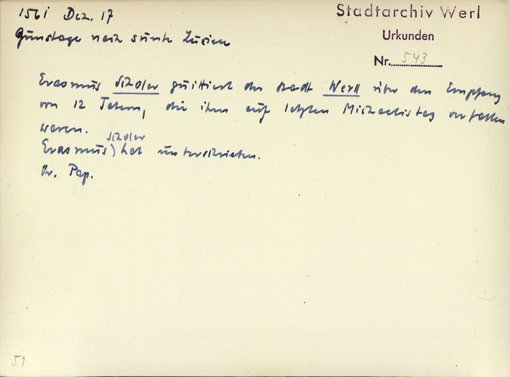 1561 Dez. 17
Gunstage nach sunte Lucien
Stadtarchiv Werl
Urkunden
Nr. 543
Erasmus Sizdler quittiert der Stadt Werl über den Empfang
von 12 Talern, die ihm auf letzten Michaelistag verfallen
waren.
Erasmus) hat unterschrieben.
Or. Pap.
51